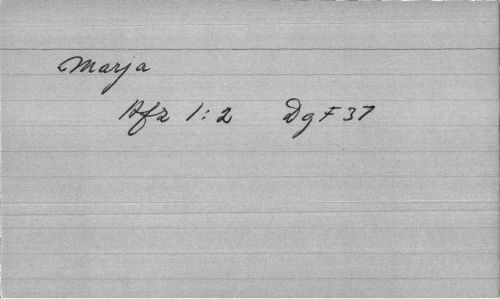 Marja
Afz 1:2 DgF 37